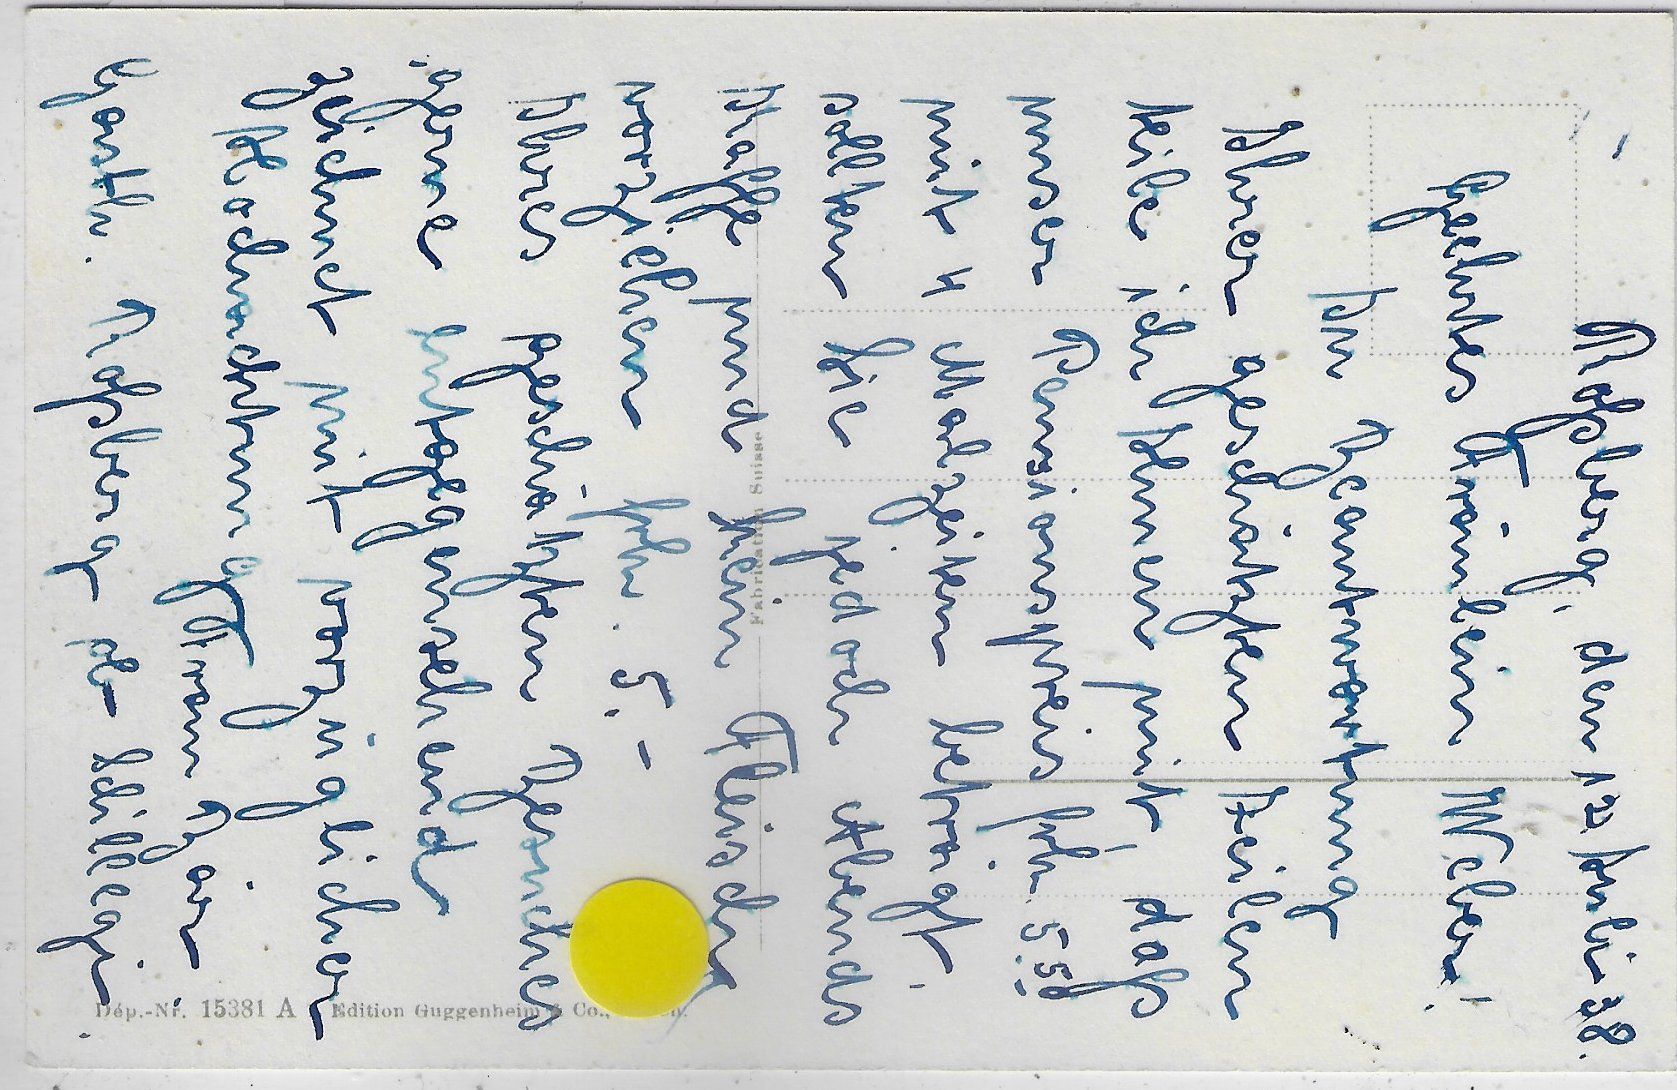 Roßberg, den 12 Juli 38.
Geehrtes Fräulein Weber!
In Beantwortung
Ihrer geschätzten Zeilen
teile ich Ihnen mit, daß
unser Pensionspreis frk. 5.50
mit 4 Malzeiten beträgt.
sollten Sie jedoch Abends
Kaffe und kein Fleisch
vorziehen frk. 5.-
Ihres geschätzten Berichtes
gerne entgegensehend
zeichnet mit vorzüglicher
Hochachtung
Frau Bär.
Gasth. Roßberg ob Schillegi.
Fabrication Suisse
Dép.-Nr. 15381 A Edition Guggenheim & Co.,